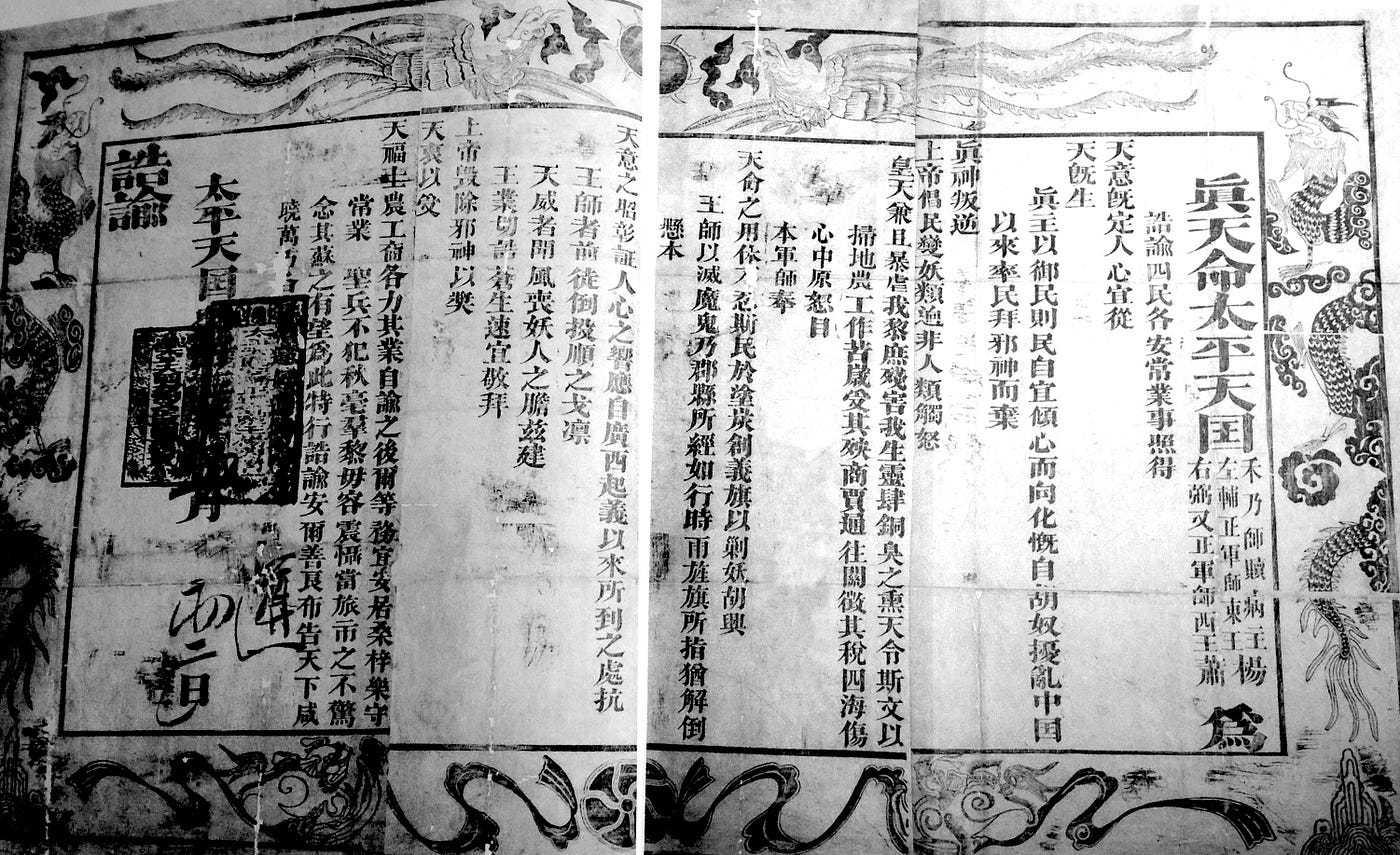 眞天命太平天囯
禾乃師贖病王
左輔正軍師東王楊
右弼又正軍師西王蕭
爲
誥諭四民各安常業事照得
天意既定人心宜從
天既生
眞王以御民則民自宜傾心而向化慨自胡奴擾亂中囯
以來率民拜邪神而棄
眞神叛逆
上帝倡民變妖類逈非人類觸怒
皇天兼且暴虐我黎庶殘害我生靈肆銅臭之熏天令斯文以
掃地農工作苦歲受其殃商賈通往關徵其稅四海傷
心中原怒目
本軍師奉
天命之用休不忍斯民於塗炭創義旗以剿妖胡興
王師以滅魔鬼乃郡縣所經如行時雨旌旗所指猶解倒
懸本
天意之昭彰証人心之響應自廣西起義以來所到之處抗
王師者前徒倒扱順之戈凛
天威者聞風喪妖人之膽茲建
王業切誥蒼生速宜敬拜
上帝毀除邪神以奖
天衷以受
天福士農工商各力其業自諭之後爾等務宜安居桑梓樂守
常業 聖兵不犯秋毫羣黎毋容震懾當旅市之不驚
念其蘇之有望爲此特行誥諭安爾善良布告天下咸
曉萬
太平天囯 月初二日
誥諭